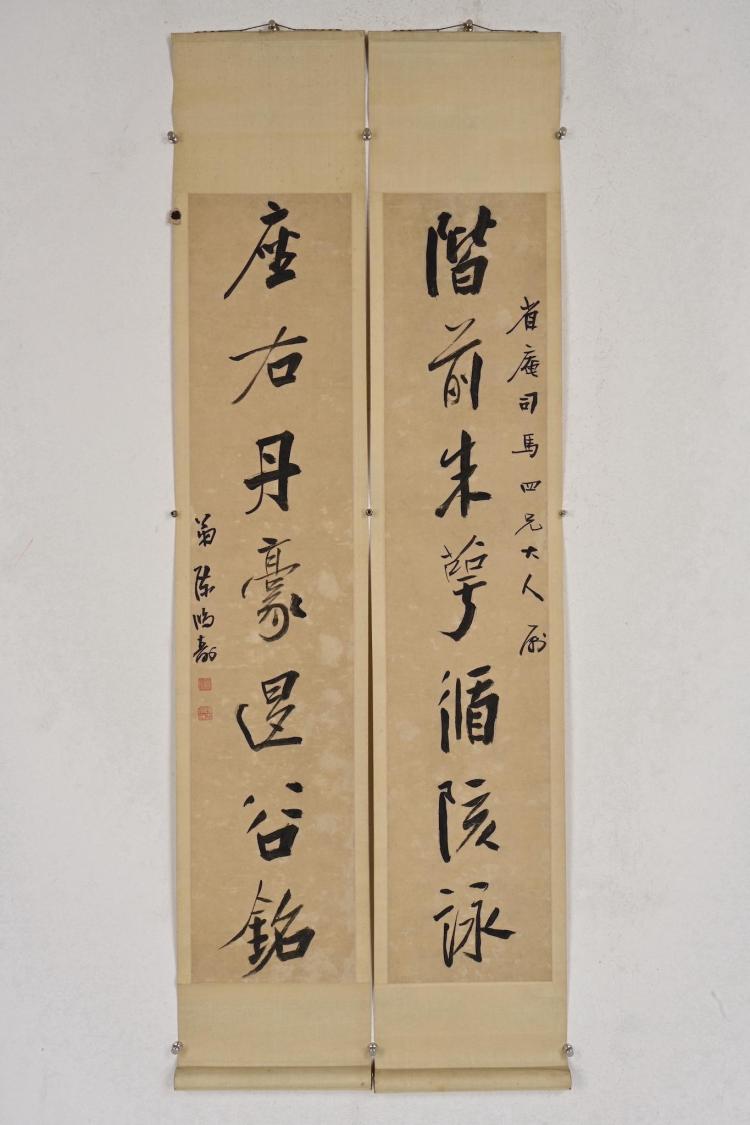 省庵司馬四兄大人屬
階前朱萼循陔詠
座右丹豪退谷銘
弟陳鴻壽